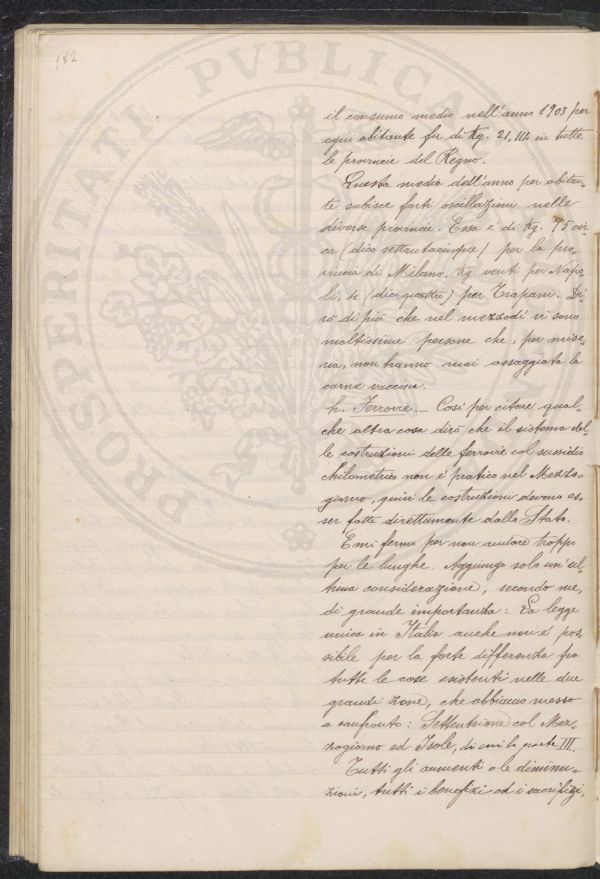 182
il consumo medio nell'anno 1903 per
ogni abitante fu di Kg. 21,114 in tutte
le provincie del Regno.
Questa media dell'anno per abitan-
te subisce forti oscillazioni nelle
diverse provincie. Essa è di Kg. 75 cir-
ca (dico settantacinque) per la pro-
vincia di Milano, Kg. venti per Napo-
li, 4 (dico quattro) per Trapani. Di-
rò di più che nel mezzodì vi sono
moltissime persone che, per mise-
ria, non hanno mai assaggiato la
carne vaccina.
h. Ferrovie. - Così per citare qual-
che altra cosa dirò che il sistema del-
le costruzioni delle ferrovie col sussidio
chilometrico non è pratico nel Mezzo-
giorno, quivi le costruzioni devono es-
ser fatte direttamente dallo Stato.
E mi fermo per non andare troppo
per le lunghe. Aggiungo solo un'ul-
tima considerazione, secondo me,
di grande importanza: La legge
unica in Italia anche non è pos-
sibile per la forte differenza fra
tutte le cose esistenti nelle due
grandi zone, che abbiamo messo
a confronto: Settentrione col Mez-
zogiorno ed Isole, di cui la parte III.
Tutti gli aumenti o le diminu-
zioni, tutti i benefizi ed i sacrifizi,
PROSPERITATI PVBLICAE